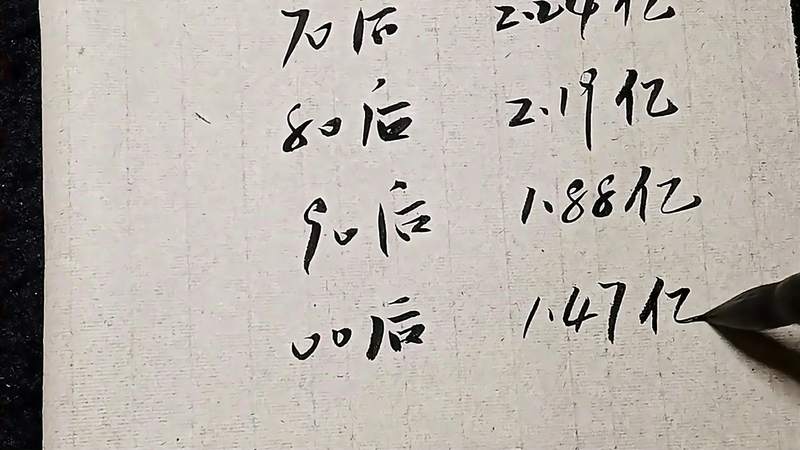 70后 2.24亿
80后 2.19亿
90后 1.88亿
00后 1.47亿